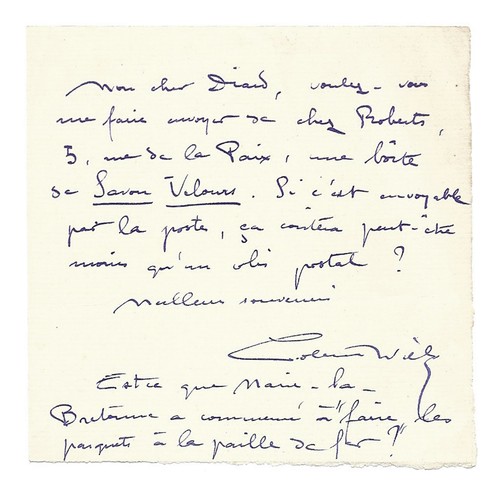 Mon cher Diard, voulez-vous
me faire envoyer de chez Roberts,
5, rue de la Paix, une boîte
de Savon Velours. Si c'est envoyable
par la poste, ça coûtera peut-être
moins qu'un colis postal ?
Meilleur souvenir
Colette Willy
Est-ce que Marie-la-
Bretonne a commencé à "faire les
parquets à la paille de fer ?"